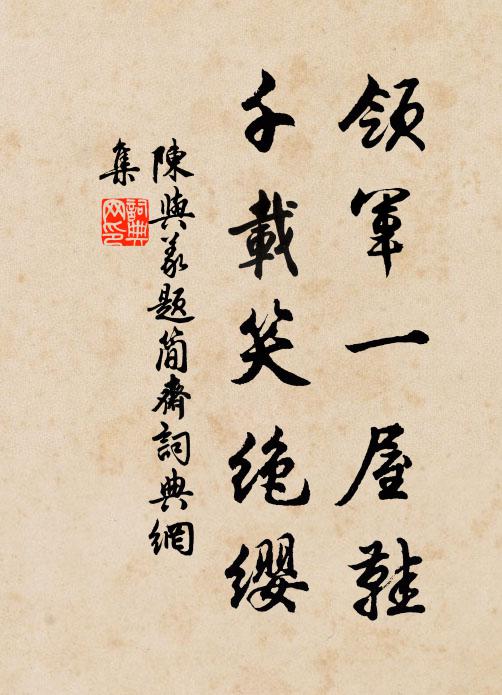 領軍一屋鞋
千載笑絶纓
陳與義題簡齋詞典網
集
詞典網印